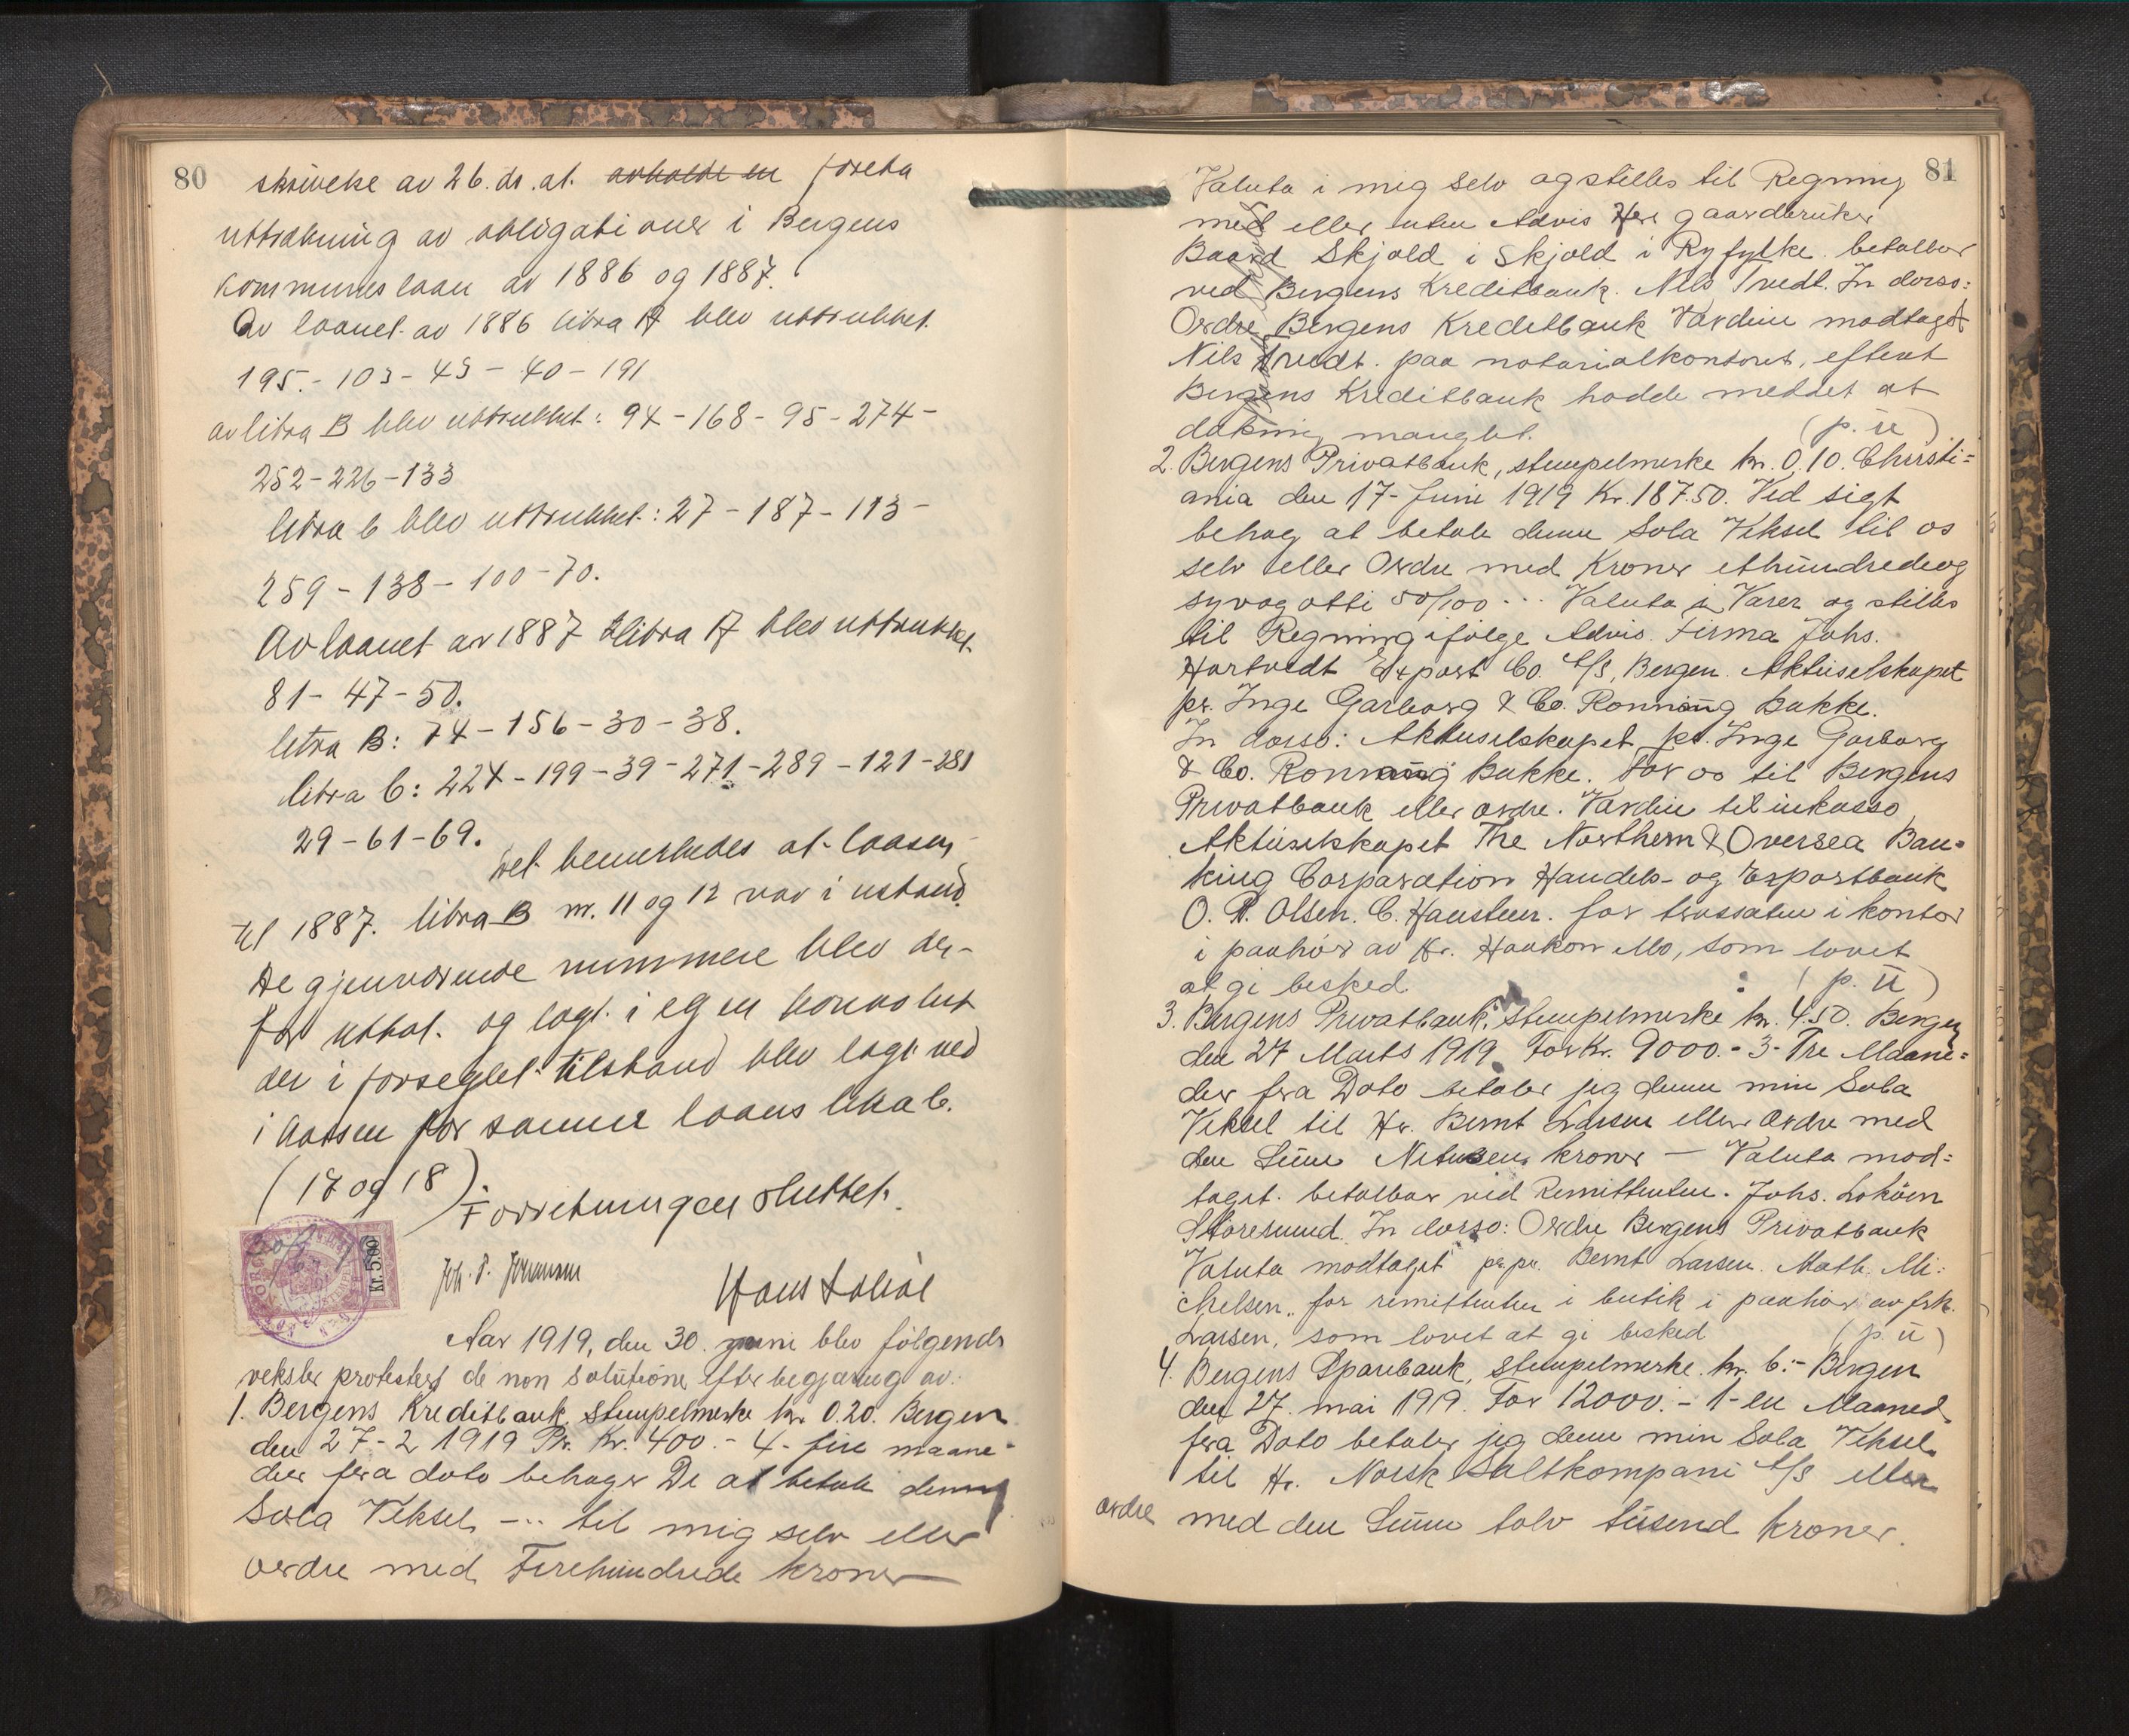 80
skrivelse av 26. ds. at. avholde en foreta
uttrækning av obligationer i Bergens
kommuneslaan av 1886 og 1887.
Av laanet av 1886 litra A blev uttrukket.
195 - 103 - 43 - 40 - 191
av litra B blev uttrukket: 94 - 168 - 95 - 274 -
252 - 226 - 133
litra C blev uttrukket: 27 - 187 - 113 -
259 - 138 - 100 - 70.
Av laanet av 1887 litra A blev uttrukket.
81 - 47 - 50.
litra B: 74 - 156 - 30 - 38.
litra C: 224 - 199 - 39 - 271 - 289 - 121 - 281
29 - 61 - 69.
Det bemerkedes at laasen
til 1887. litra B nr. 11 og 12 var i ustand.
De gjenværende nummere blev der-
for uttat. og lagt. i egen konvolut
der i forseglet tilstand blev lagt ned
i kassen for samme laans litra C.
(17 og 18). Forretningen sluttet.
Kr. 5.00
Joh. P. Johansen
Hans
Aar 1919, den 30. juni blev følgende
veksler protestert de non solutione efter begjæring av:
1. Bergens Kreditbank. Stempelmerke kr. 0.20. Bergen
den 27-2 1919 Pr. Kr. 400.- 4- fire maane-
der fra dato behager De at betale denne
Sola Veksel -.. til mig selv eller
ordre med Firehundrede kroner
81
Valuta i mig selv og stilles til Regning
med eller uten Advis Herr gaardbruker
Baard Skjold i Skjold i Ryfylke. betalbar
ved Bergens Kreditbank. Nils Tvedt. In dorso:
Ordre Bergens Kreditbank Værdien modtaget
Nils Tvedt. paa notarialkontoret, efterat
Bergens Kreditbank hadde meddelt at
dækning manglet. (p. u)
2. Bergens Privatbank, stempelmerke kr. 0,10. Christi=
ania den 17- Juni 1919 Kr. 187.50. Ved sigt
behag at betale denne Sola Veksel til os
selv eller Ordre med Kroner ethundredeog
syvogotti 50/100 ... Valuta i Varer og stilles
til Regning ifølge Advis. Firma Johs.
Hartvedt Export Co. A/S, Bergen. Aktieselskapet
pr. Inge Garborg & Co. Ronning Bakke.
In dorso: Aktieselskapet pr. Inge Garborg
& Co. Ronning Bakke. For os til Bergens
Privatbank eller ordre. Værdien til inkasso
Aktieselskapet The Northern & Oversea Ban=
king Corporation Handels- og Exportbank
O. A. Olsen. C. Hansteen. for trassaten i kontor
i paahør av Hr. Haakon Mo, som lovet
at gi besked. : (p. u)
3. Bergens Privatbank. Stempelmerke kr. 4.50. Bergen
den 27 Marts 1919 For Kr. 9000.- 3- Tre Maane=
der fra Dato betaler jeg denne min Sola
Veksel til Hr. Bernt Larsen eller Ordre med
den Sum Nitusen kroner — Valuta mod=
taget. betalbar ved Remittenten. Johs. Lokøen
Storesund. In dorso: Ordre Bergens Privatbank
Valuta modtaget pr. pr. Bernt Larsen. Math. Mi=
chelsen.. for remittenten i butik i paahør av frk.
Larsen, som lovet at gi besked (p. u)
4. Bergens Sparebank, stempelmerke. kr. 6:- Bergen
den 27. mai 1919. For 12000.- 1- en Maaned
fra Dato betaler jeg denne min Sola Veksel
til Hr. Norsk Saltkompani A/S eller
ordre med den Sum tolv tusend kroner.